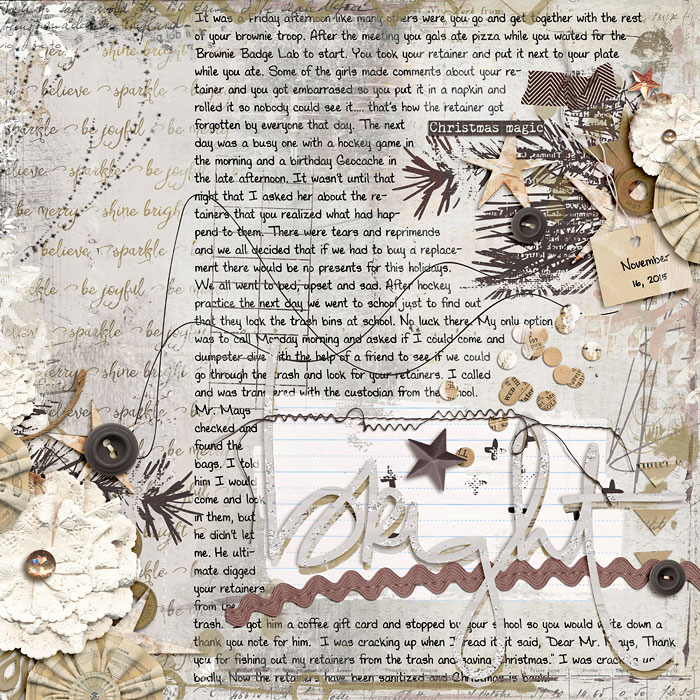 It was a Friday afternoon like many others were you go and get together with the rest
of your brownie troop. After the meeting you gals ate pizza while you waited for the
Brownie Badge Lab to start. You took your retainer and put it next to your plate
while you ate. Some of the girls made comments about your re-
tainer and you got embarrased so you put it in a napkin and
rolled it so nobody could see it.... that's how the retainer got
forgotten by everyone that day. The next
day was a busy one with a hockey game in
the morning and a birthday Geocache in
the late afternoon. It wasn't until that
night that I asked her about the re-
tainers that you realized what had hap-
pend to them. There were tears and reprimends
and we all decided that if we had to buy a replace-
ment there would be no presents for this holidays.
We all went to bed, upset and sad. After hockey
practice the next day we went to school just to find out
that they lock the trash bins at school. No luck there. My only option
was to call Monday morning and asked if I could come and
dumpster dive with the help of a friend to see if we could
go through the trash and look for your retainers. I called
and was transfered with the custodian from the school.
Mr. Mays
checked and
found the
bags. I told
him I would
come and look
in them, but
he didn't let
me. He ulti-
mate digged
your retainers
from the
trash. I got him a coffee gift card and stopped by your school so you would write down a
thank you note for him. I was cracking up when I read it, it said, "Dear Mr. Mays, Thank
you for fishing out my retainers from the trash and saving Christmas." I was cracking up
badly. Now the retainers have been sanitized and Christmas is back!
Christmas magic
November
16, 2015
bright
believe sparkle be joyful
be merry shine bright
believe sparkle
be joyful be
merry shine bright